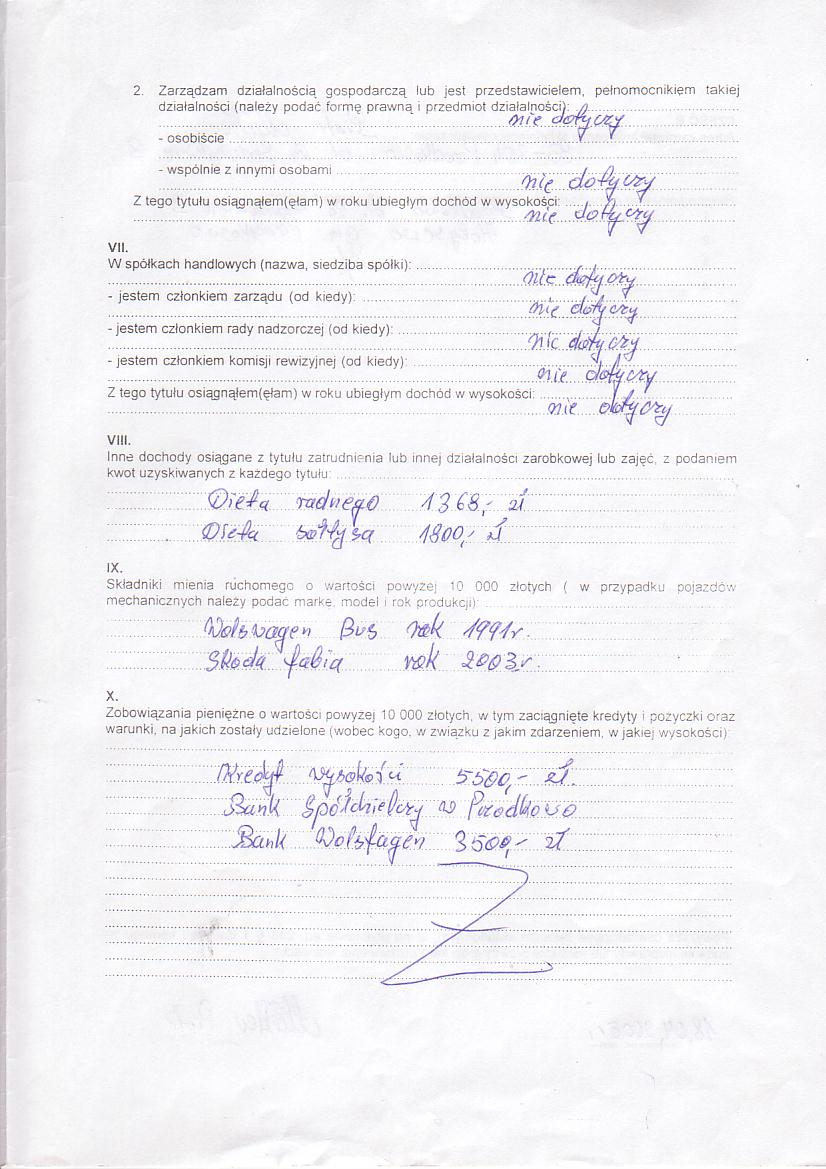 2. Zarządzam działalnością gospodarczą lub jest przedstawicielem, pełnomocnikiem takiej
działalności (należy podać formę prawną i przedmiot działalności):
nie dotyczy
- osobiście
- wspólnie z innymi osobami
nie dotyczy
Z tego tytułu osiągnąłem(ęłam) w roku ubiegłym dochód w wysokości:
nie dotyczy
VII.
W spółkach handlowych (nazwa, siedziba spółki):
nie dotyczy
- jestem członkiem zarządu (od kiedy):
nie dotyczy
- jestem członkiem rady nadzorczej (od kiedy):
nie dotyczy
- jestem członkiem komisji rewizyjnej (od kiedy):
nie dotyczy
Z tego tytułu osiągnąłem(ęłam) w roku ubiegłym dochód w wysokości:
nie dotyczy
VIII.
Inne dochody osiągane z tytułu zatrudnienia lub innej działalności zarobkowej lub zajęć, z podaniem
kwot uzyskiwanych z każdego tytułu:
Dieta radnego 1368,- zł
Dieta sołtysa 1800,- zł
IX.
Składniki mienia ruchomego o wartości powyżej 10 000 złotych ( w przypadku pojazdów
mechanicznych należy podać markę, model i rok produkcji):
Wolswagen Bus rok 1991r.
Skoda fabia rok 2003r.
X.
Zobowiązania pieniężne o wartości powyżej 10 000 złotych, w tym zaciągnięte kredyty i pożyczki oraz
warunki, na jakich zostały udzielone (wobec kogo, w związku z jakim zdarzeniem, w jakiej wysokości):
Kredyt wysokości 5500,- zł.
Bank Spółdzielczy w Przodkowo
Bank Wolsfagen 3500,- zł